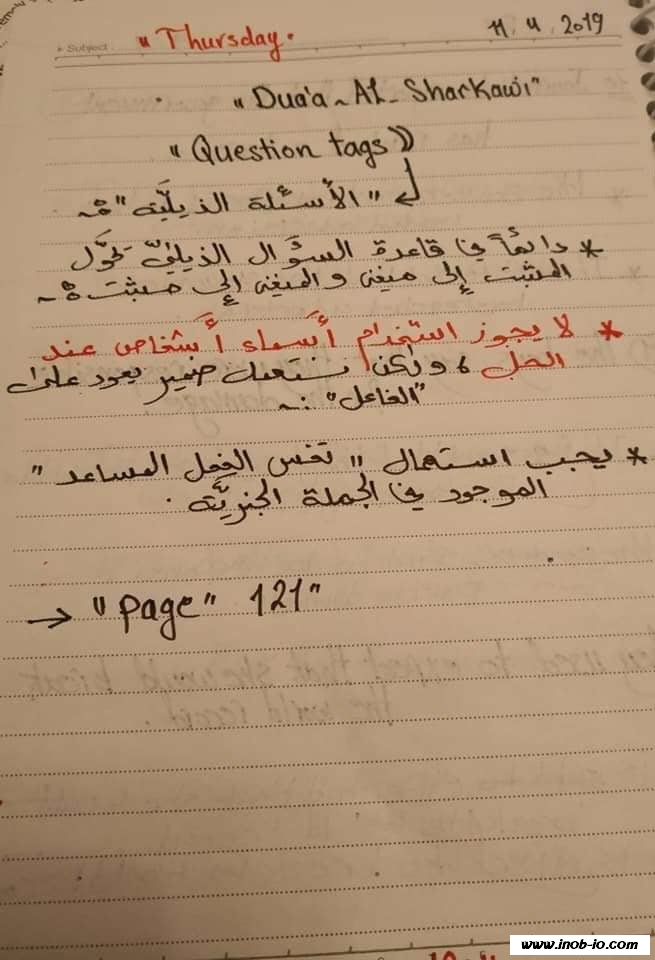 Subject :
"Thursday.
11. 4. 2019
"Dua'a ~ AL - Sharkawi"
"Question tags"
"الأسئلة الذيليَّة" :~
* دائماً في قاعدة السؤال الذيليّ نحَوّل
المثبت إلى منفي و المنفي إلى مثبت :~
* لا يجوز استخدام أسماء أشخاص عند
الحل ، ولكن نستعمل ضمير يعود على
"الفاعل" :~
* يجب استعمال " نفس الفعل المساعد "
الموجود في الجملة الخبريَّة .
→ "page" 121"
www.inob-io.com